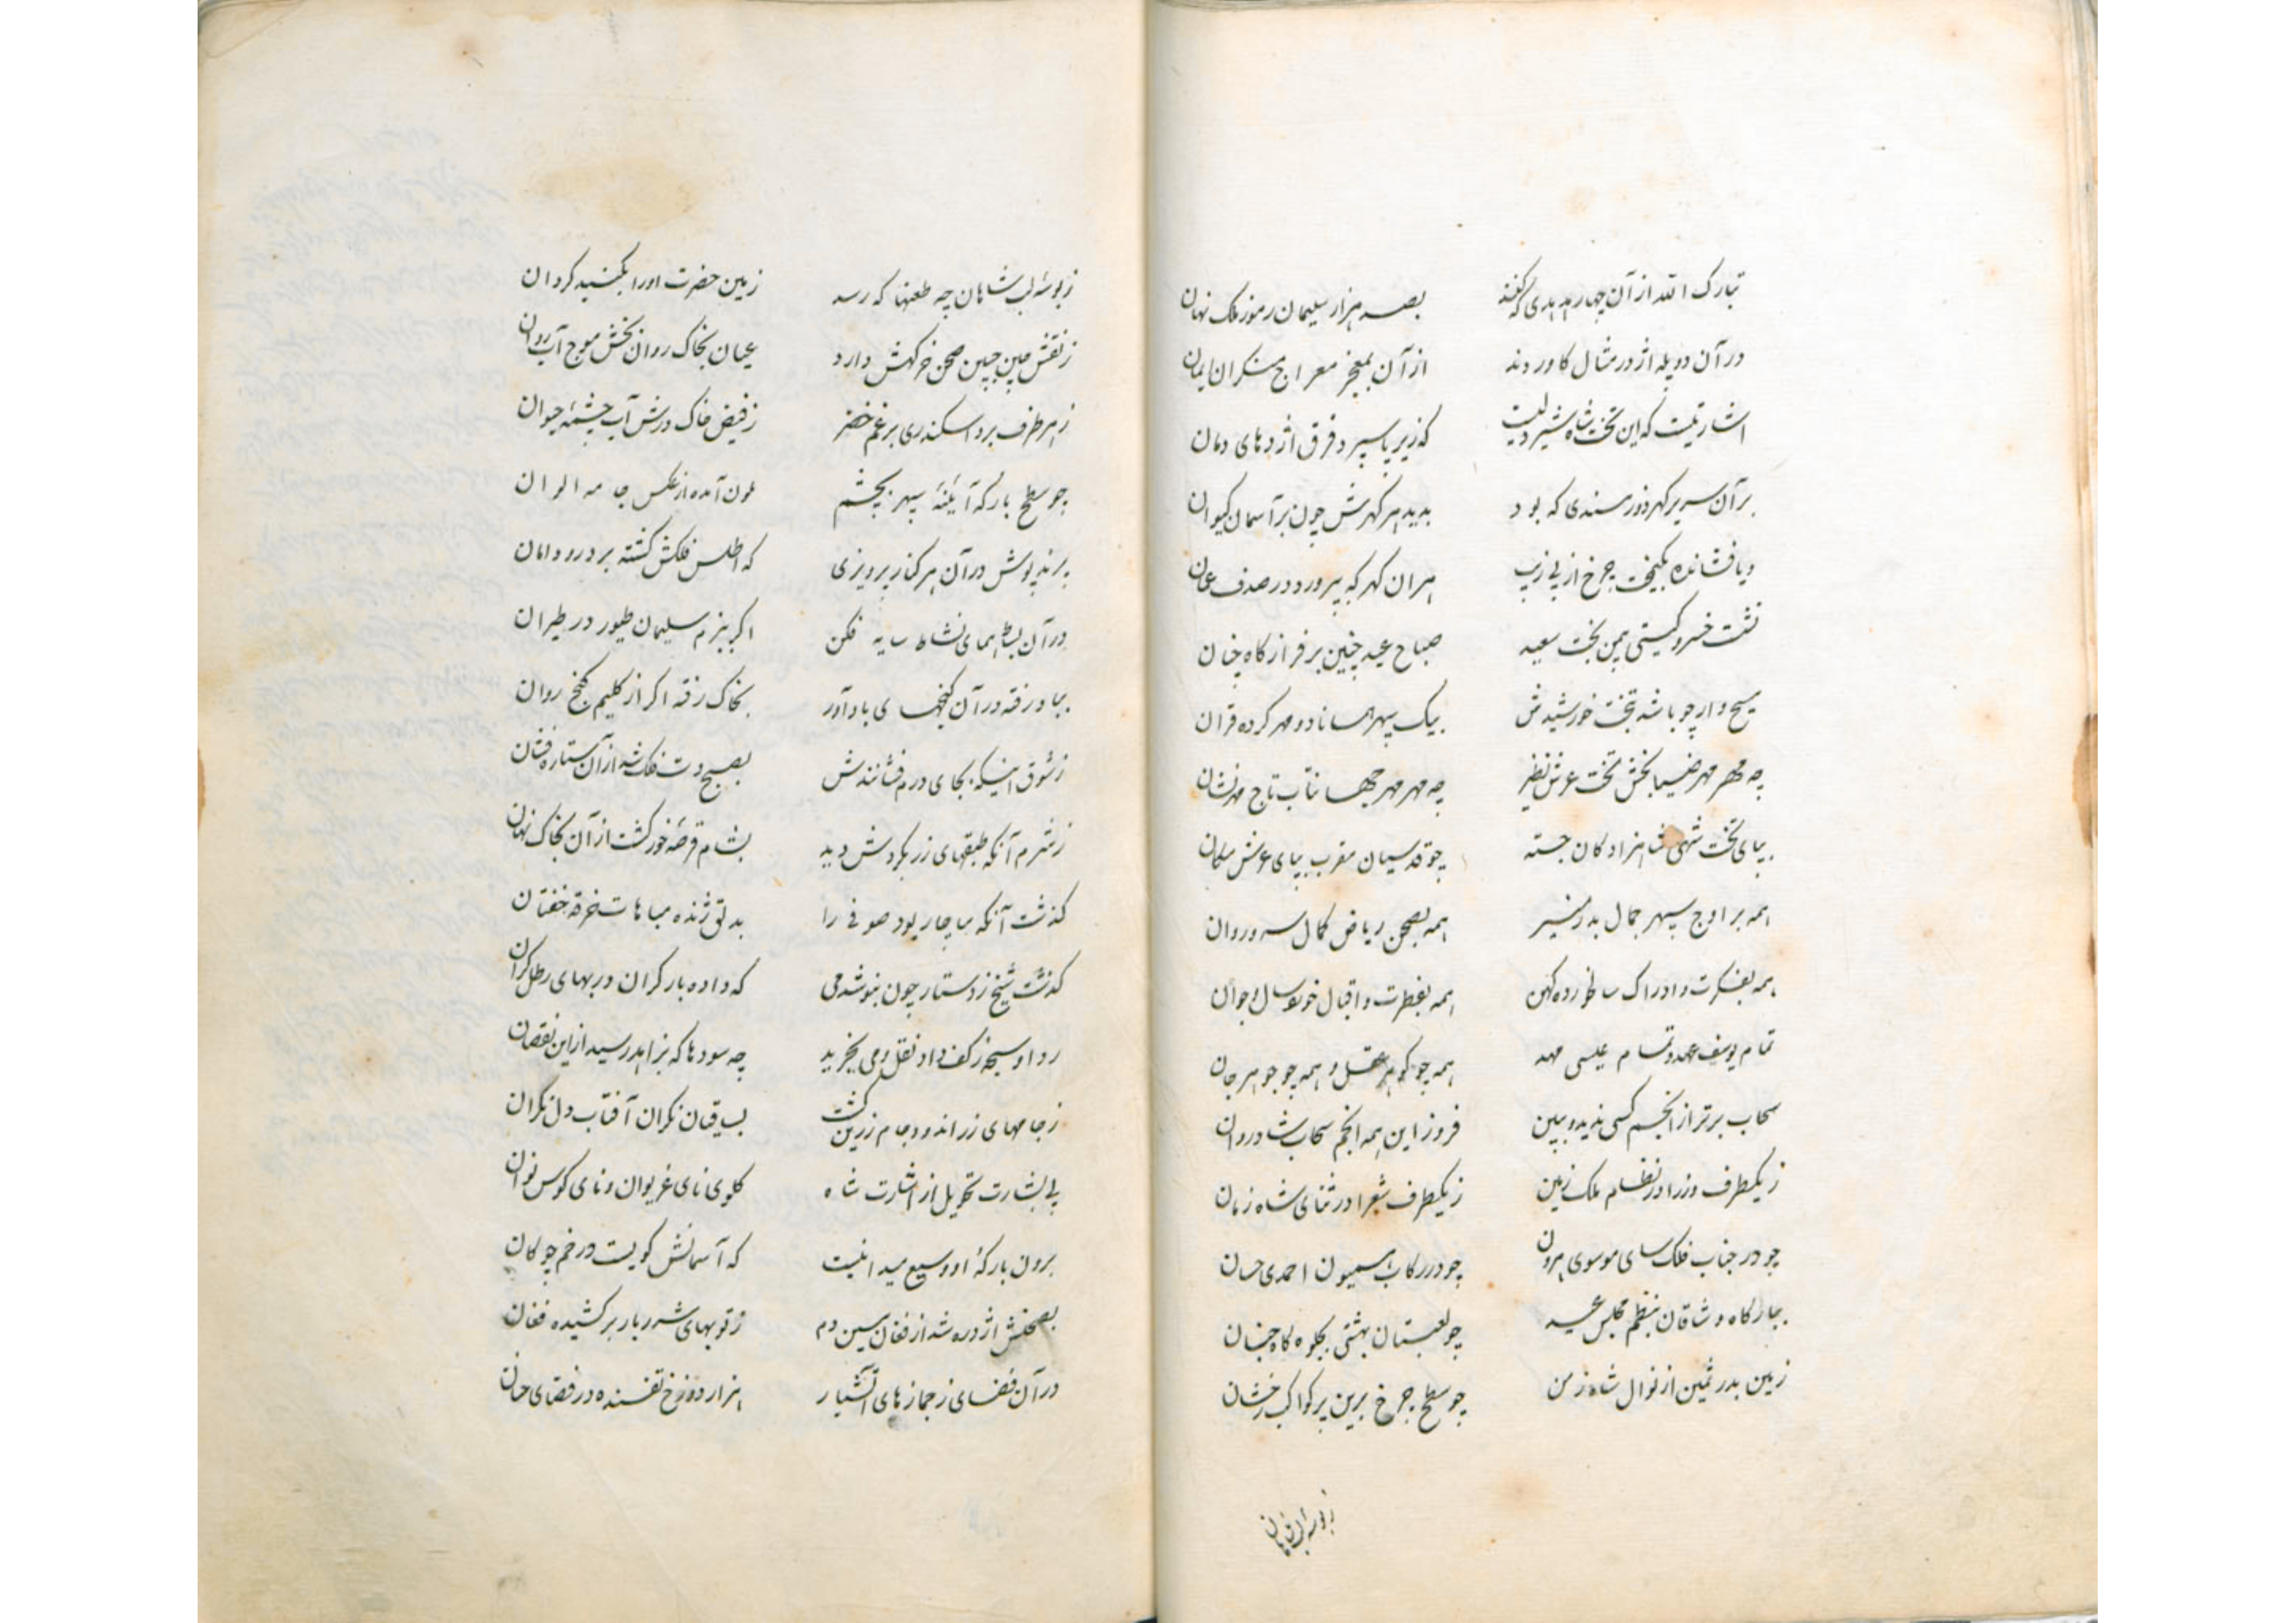 تبارک الله از آن چهار هدهدی که کنند بصد هزار سلیمان رموز ملک نهان
در آن دو پله اژدر مثال کاوردند از آن بمعجز معراج منکران ایمان
اشارتیست که این تخت شاه شیردلیست که زیر پا سپرد فرق اژدهای دمان
بر آن سریر کهر دوز مسندی که بود بدید هر کهرش چون بر آسمان کیوان
و یا فشانده بکیمخت چرخ از پی زیب هران کهر که بپرورد در صدف عمان
نشست خسرو کیتی بیمن بخت سعید صباح عید چنین بر فراز کاه چنان
مسیح وار چو با شه بتخت خورشیدش بیک سپهر همانا دو مهر کرده قران
چه مهر مهر ضیا بخش تخت عرش نظیر چه مهر مهر جهانتاب تاج مهر نشان
بپای تخت شهی شاهزادکان جسته چو قدسیان مقرب بپای عرش مکان
همه بر اوج سپهر جمال بدر منیر همه بصحن ریاض کمال سرو روان
همه بفکرت و ادراک سالخورده کهن همه بفطرت و اقبال خوردسال و جوان
تمام یوسف عهد و تمام عیسی مهد همه چو کوهر عقل و همه چو جوهر جان
سحاب برتر از انجم کسی ندید و ببین فروز این همه انجم سحاب شادروان
ز یکطرف وزرا در نظام ملک زمین ز یکطرف شعرا در ثنای شاه زمان
چو در جناب فلک سای موسوی هرون چو در رکاب همیون احمدی حسان
ببارکاه وشاقان بنظم مجلس عید چو لعبتان بهشتی بجلوه کاه جنان
زمین بدر ثمین از نوال شاه زمن چو سطح چرخ برین پر کواکب رخشان
ز بوسهٔ لب شاهان
ز بوسهٔ لب شاهان چه طعنها که رسد زمین حضرت او را بکنبد کردان
ز نقش چین جبین صحن خرکهش دارد عیان بخاک روان بخش موج آب روان
ز هر طرف برد اسکندری برغم خضر ز فیض خاک درش آب چشمهٔ حیوان
چو سطح بارکه آیینهٔ سپهر بچشم ملون آمده از عکس جامه الوان
پرند پوش در آن هر کنار پرویزی که اطلس فلکش کشته بر درو دامان
در آن بساط همای نشاط سایه فکن اکر ببزم سلیمان طیور در طیران
بباد رفته در آن کنجهای باد آور بخاک رفته اکر از کلیم کنج روان
ز شوق اینکه بجای درم فشانندش بصبح دست فلک شد از آن ستاره فشان
ز شرم آنکه طبقهای زر بکردش دید بشام قرصهٔ خور کشت از آن بخاک نهان
کذشت آنکه بناچار بود صوفی را بدلق ژنده مباهات خرقه خفتان
کذشت شیخ ز دستار چون بنوشد می که داده بار کران در بهای رطل کران
ردا و سبحه ز کف داد و نقل و می بخرید چه سودها که بزاهد رسید از این نقصان
ز جامهای زراندود و جام زرین کشت بساقیان نکران آفتاب دل نکران
پی بشارت تحویل از اشارت شاه کلوی نای غریوان و نای کوس نوان
برون بارکهٔ او وسیع میدانیست که آسمانش کوییست در خم چوکان
بصحنش اژدر شد از فغان دم ز توپهای شرربار برکشیده فغان
در آن فضای ز جمازهای آتشبار هزار دوزخ تفسنده در فضای جنان